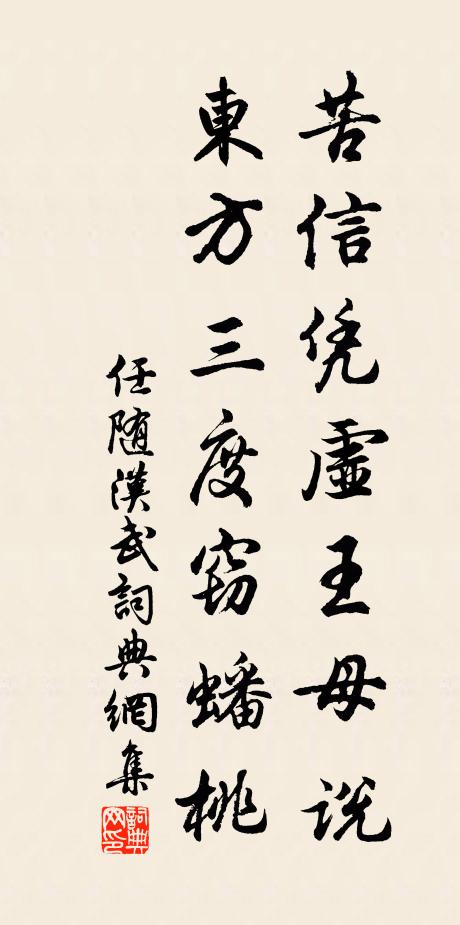 苦信凭虛王母説
東方三度窃蟠桃
任随漢武詞典網集
詞典网印